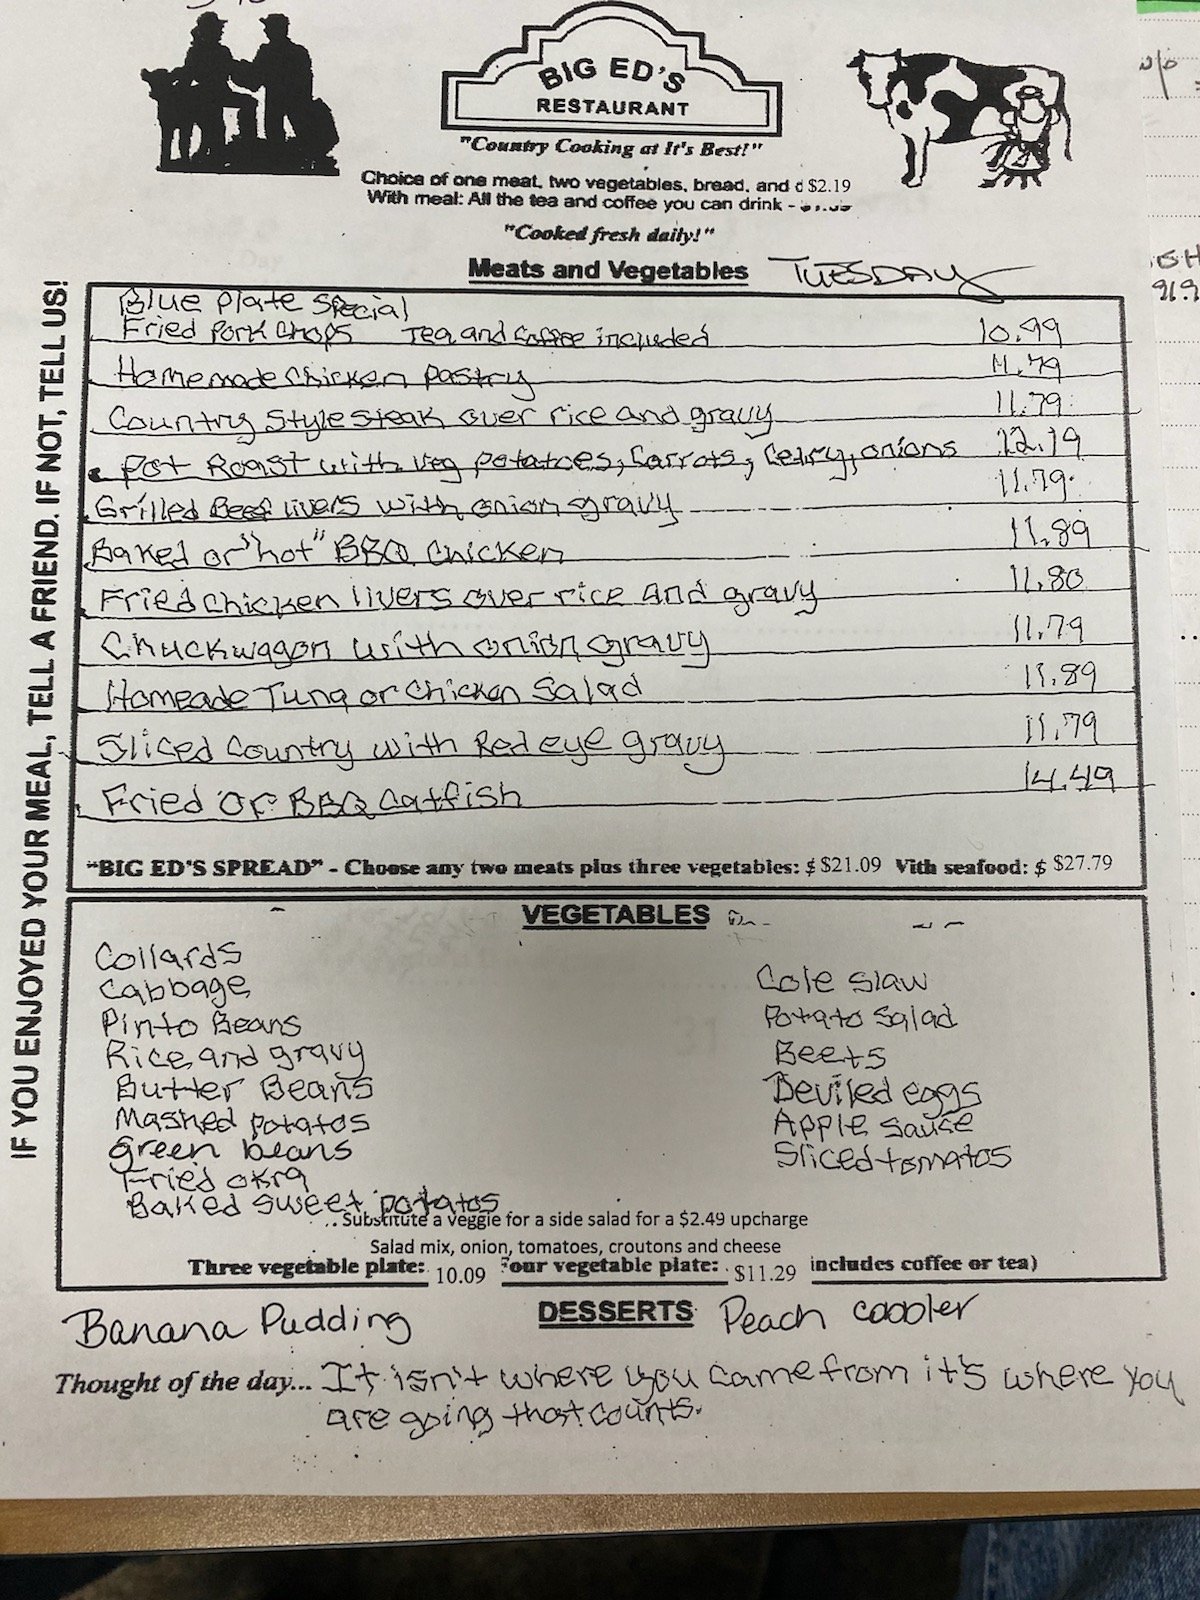 BIG ED'S
RESTAURANT
"Country Cooking at It's Best!"
Choice of one meat, two vegetables, bread, and $2.19
With meal: All the tea and coffee you can drink -
"Cooked fresh daily!"
Meats and Vegetables TUESDAY
IF YOU ENJOYED YOUR MEAL, TELL A FRIEND. IF NOT, TELL US!
Blue Plate Special
Fried Pork Chops Tea and Coffee included 10.99
Homemade Chicken pastry 11.79
Country Style steak over rice and gravy 11.79
Pot Roast with veg potatoes, Carrots, Celry, onions 12.19
Grilled Beef livers with onion gravy 11.79
Baked or "hot" BBQ Chicken 11.89
Fried Chicken livers over rice And gravy 11.80
Chuckwagon with onion gravy 11.79
Homeade Tuna or Chicken Salad 11.89
Sliced Country with Red eye gravy 11.79
Fried Or BBQ Catfish 14.49
"BIG ED'S SPREAD" - Choose any two meats plus three vegetables: $ $21.09 Vith seafood: $ $27.79
VEGETABLES
Collards
Cabbage
Pinto Beans
Rice and gravy
Butter Beans
Mashed potatos
green beans
Fried okra
Baked sweet potatos
Cole slaw
Potato Salad
Beets
Deviled eggs
Apple sauce
Sliced tomatos
Substitute a veggie for a side salad for a $2.49 upcharge
Salad mix, onion, tomatoes, croutons and cheese
Three vegetable plate: 10.09 Four vegetable plate: $11.29 includes coffee or tea)
DESSERTS
Banana Pudding Peach cobbler
Thought of the day... It isn't where you came from it's where you
are going that counts.